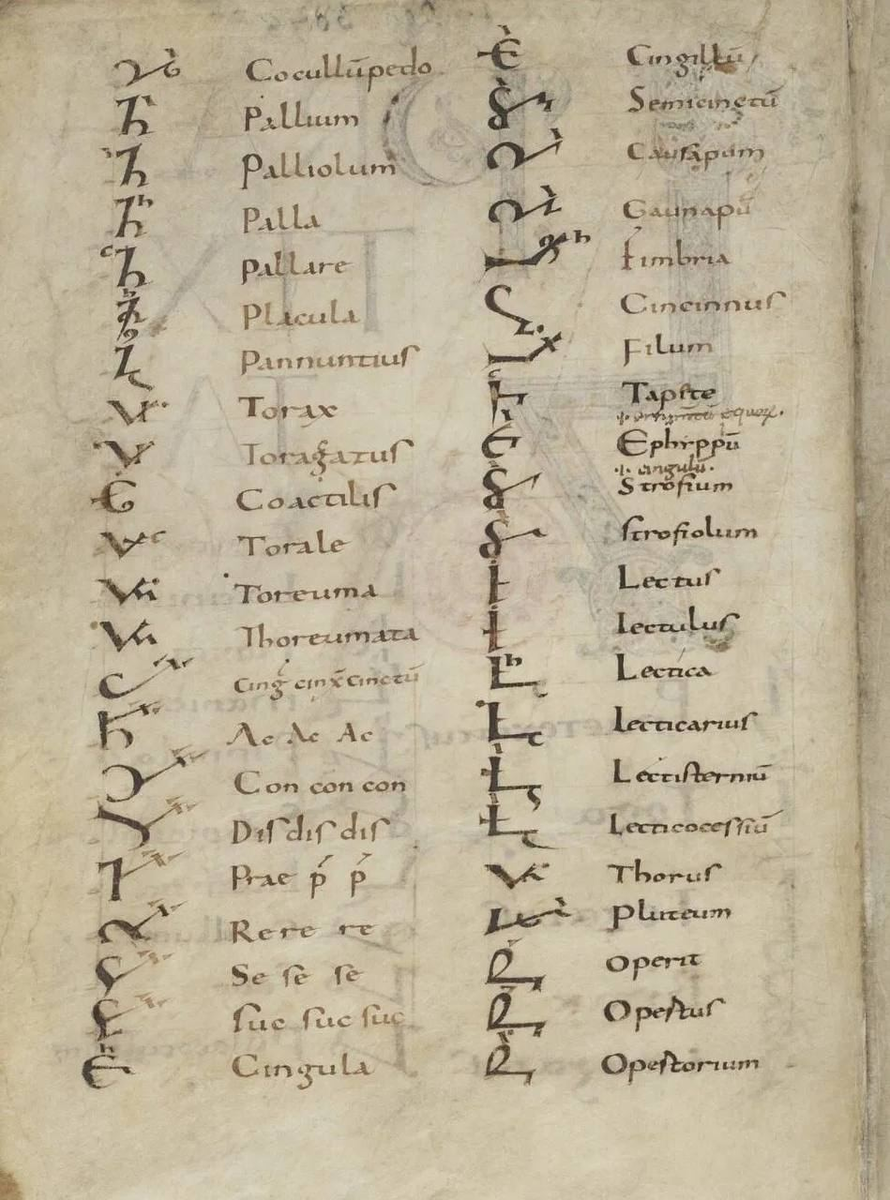 Cocullūpedo
Pallium
Palliolum
Palla
Pallare
Placula
Pannuntius
Torax
Toragatus
Coactilis
Torale
Toreuma
Thoreumata
cing cinx cinctū
Ac Ac Ac
Con con con
Dis dis dis
Prae p̄ p̄
Re re re
Se se se
suc suc suc
Cingula
Cingillū
Semicinctū
Causapum
Gaunapū
fimbria
Cincinnus
Filum
Tapete
Ephyppū
.i. cingulū.
Strofium
strofiolum
Lectus
lectulus
Lectica
lecticarius
Lectisterniū
Lecticocessiū
Thorus
Pluteum
operit
Opertus
Opertorium